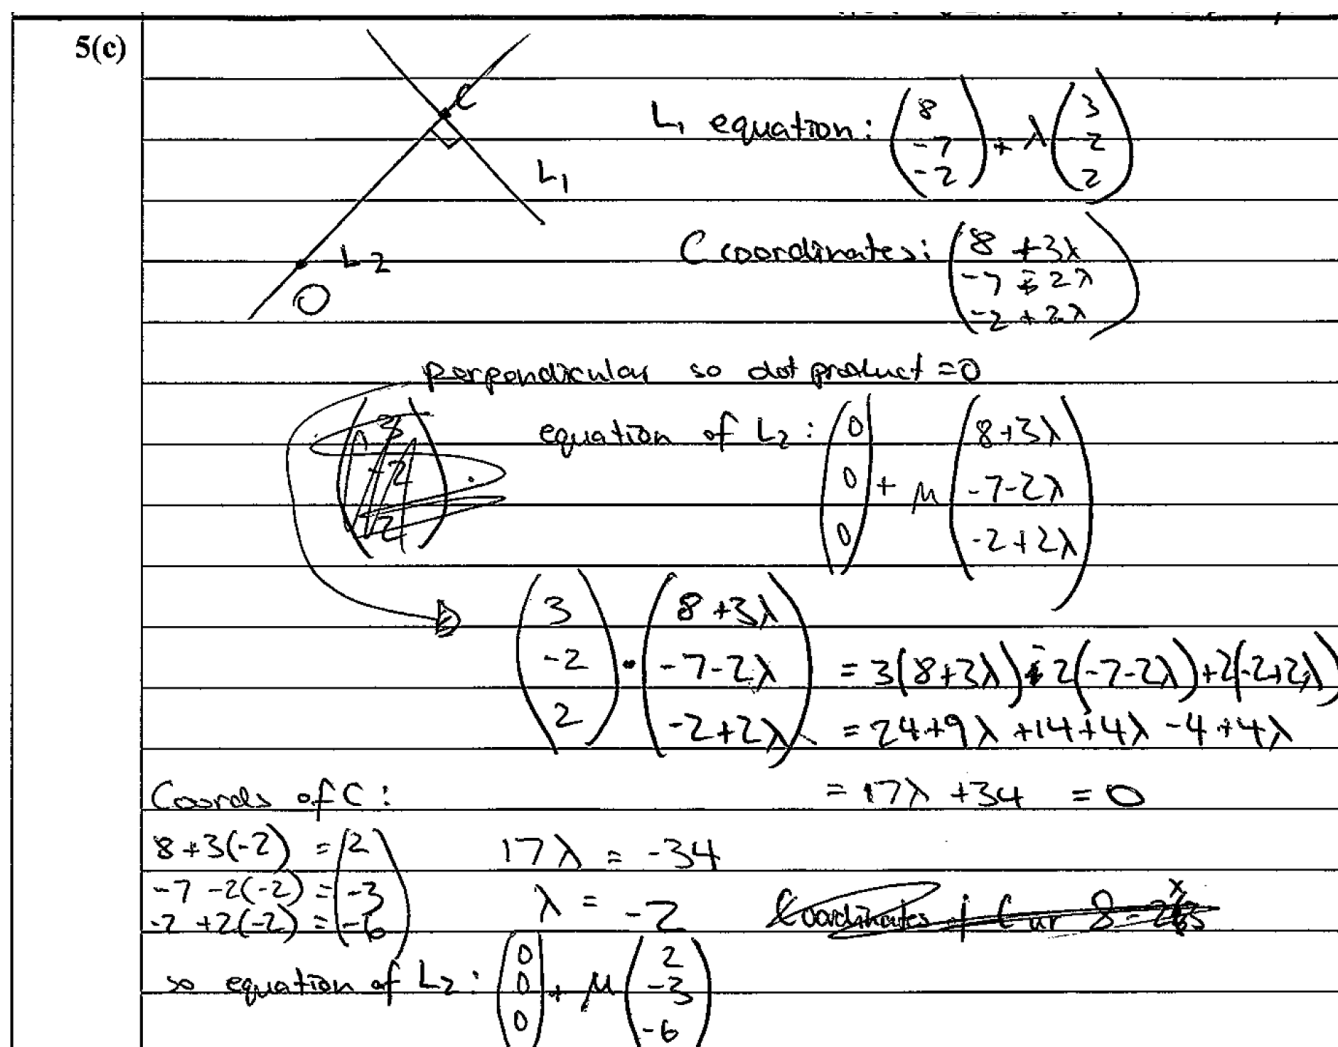 5(c)
C
L₁
L₂
O
L₁ equation: (8 -7 -2) + λ(3 -2 2)
C coordinates: (8 + 3λ
-7 - 2λ
-2 + 2λ)
perpendicular so dot product = 0
(3 -2 2) .
equation of L₂: (0 0 0) + μ(8+3λ
-7-2λ
-2+2λ)
(3 -2 2) · (8+3λ -7-2λ -2+2λ) = 3(8+3λ) - 2(-7-2λ) + 2(-2+2λ)
= 24+9λ +14+4λ -4+4λ
= 17λ + 34 = 0
17λ = -34
λ = -2
Coordinates of C
Coords of C:
8+3(-2) = (2
-7 -2(-2) = -3
-2 +2(-2) = -6)
so equation of L₂: (0 0 0) + μ(2 -3 -6)